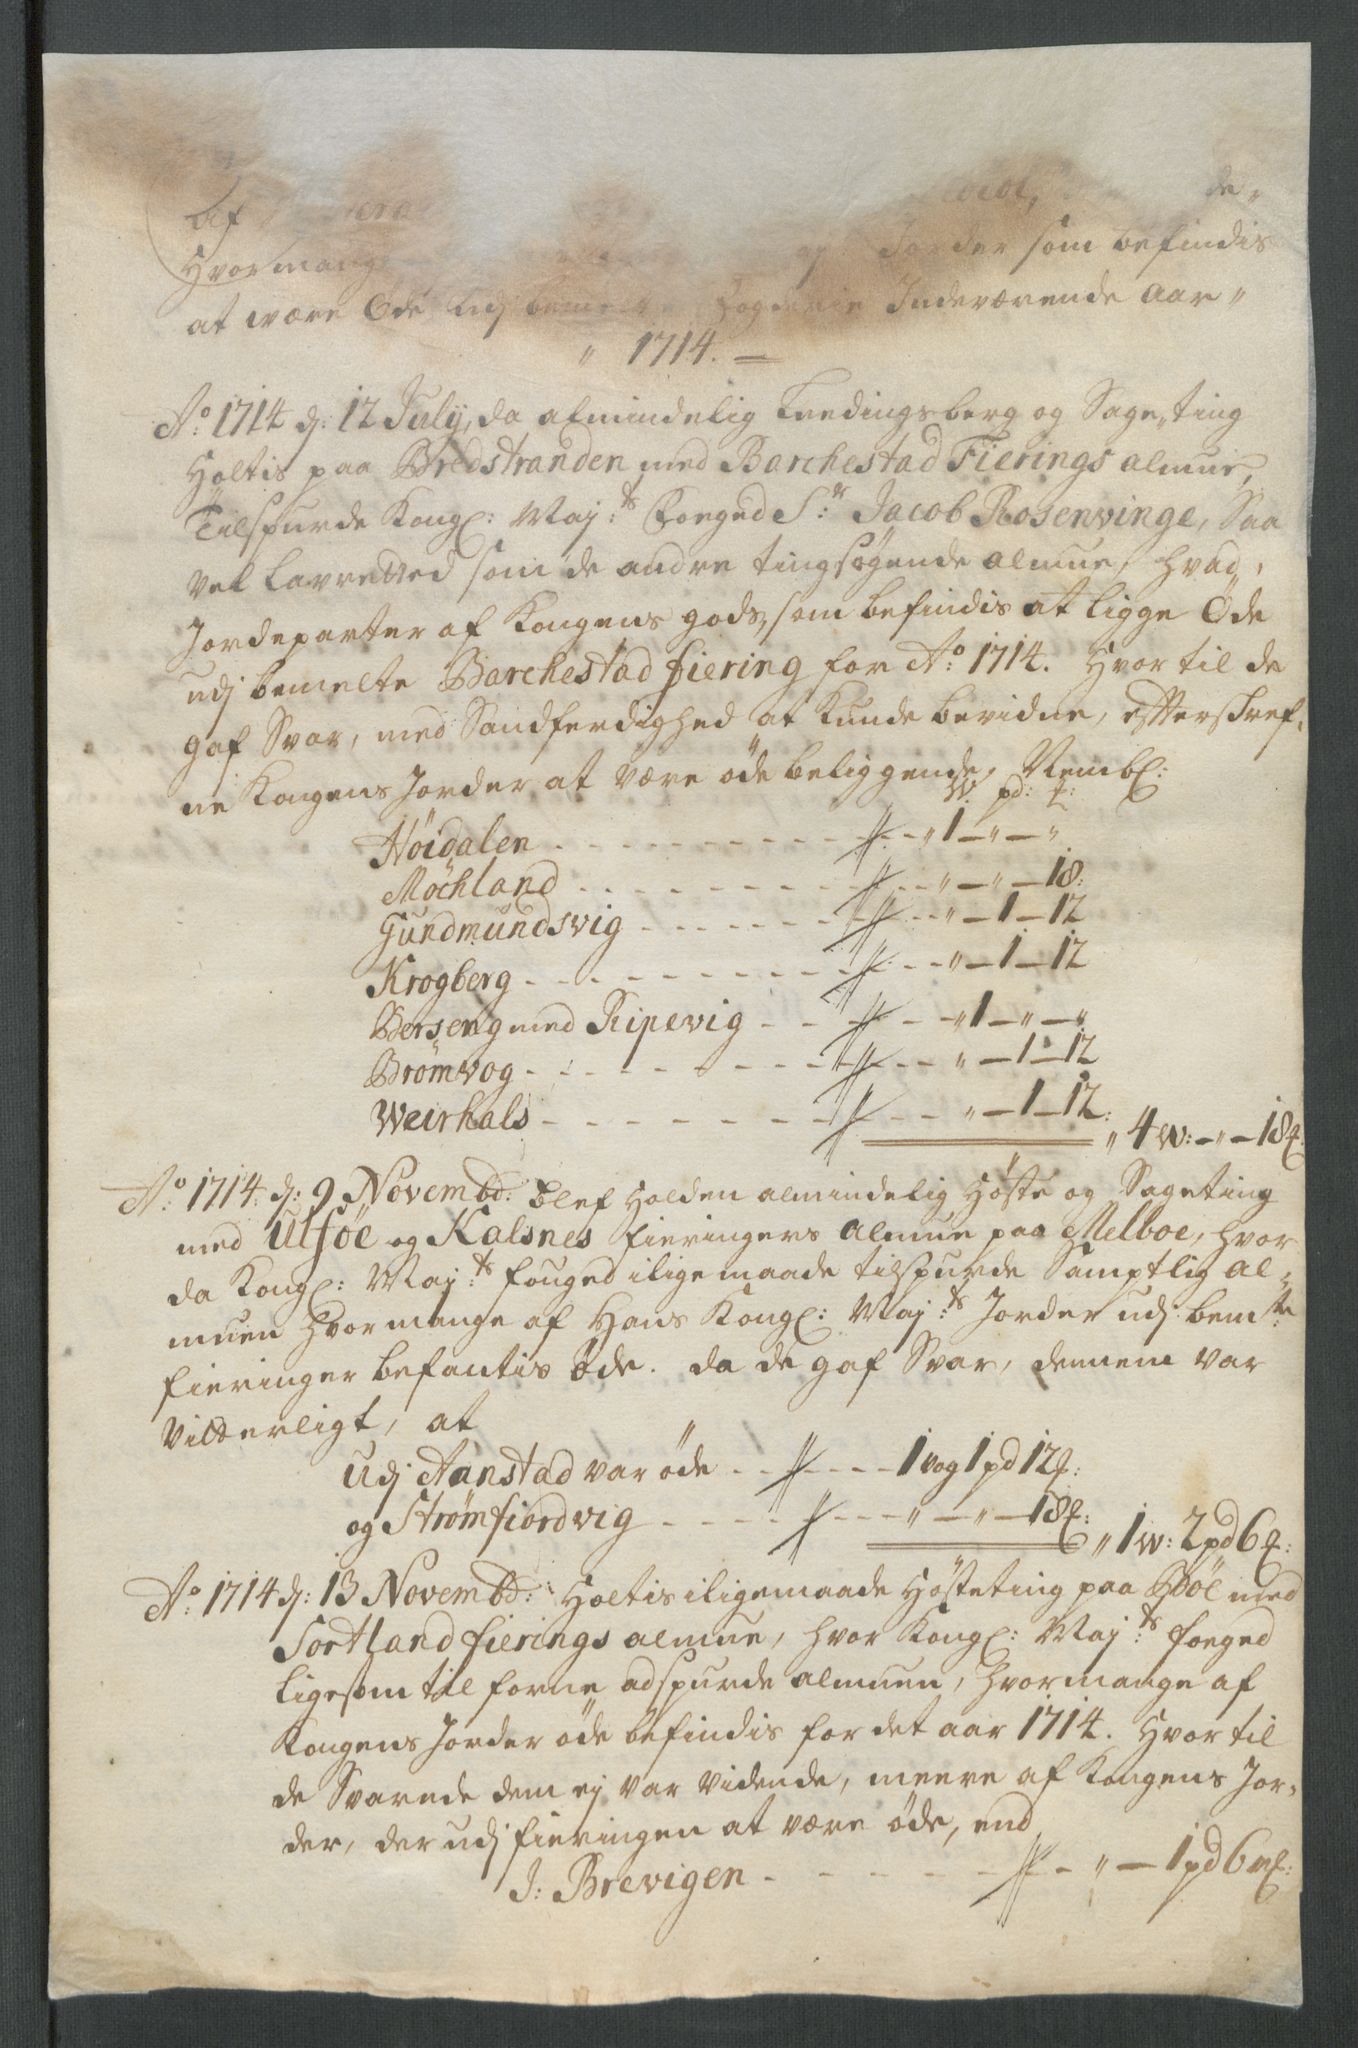 Af de
Hvormang Jorder som befindis
at være Öde udj bemelte Fogderie Indeværende Aar
1714.
Ao: 1714 d: 12 July, da almindelig Leedingsberg og Sage-ting
Holtis paa Bredstranden med Barchestad Fierings almue,
Tilspurde Kongl: Maj:ts Foeged Sr: Jacob Rosenvinge, Saa
vel Lavretted som de andre tingsøgende almue, hvad
Jordeparter af Kongens gods, som befindis at ligge Öde
udj bemelte Barchestad fiering for Ao: 1714. Hvor til de
gaf Svar, med Sandferdighed at kunde bevidne, efterskref-
ne Kongens Jorder at være öde beliggende, Nembl:
W: pd: :
Höidalen - - - „ 1 - „ - „
Möchland - - - „ - „ - 18:
Gundmundsvig - - - „ - 1 - 12
Krogberg - - - „ - 1 - 12
Berseng med Ripevig - - - „ 1 - „ - „
Brömvog - - - „ - 1 - 12
Weirhals - - - „ - 1 - 12: „ 4 W: - „ - 18
Ao: 1714: d: 9 Novembr: blef Holden almindelig Höste og Sageting
med Ulföe og Kalsnes fieringers almue paa Melboe, hvor
da Kongl: Maj:ts fouged iligemaade tilspurde Samptlig al-
muen hvormange af Hans Kongl: Maj:ts Jorder udj bem:te
fieringer befantis öde. da de gaf Svar, dennem var
Vitterligt, at
Udj Aanstad var öde - - - 1 vog 1 pd 12:
og Strömfiordvig - - - „ - „ - 18: „ 1 W: 2 pd 6:
Ao: 1714 d: 13 Novembr: Holtis iligemaade Hösteting paa med
Sortland fierings almue, hvor Kongl: Maj:ts foeged
ligesom til forne adspurde almuen, hvormange af
Kongens Jorder öde befindis for det aar 1714. Hvor til
de Svarede dem ej var vidende, meere af Kongens Jor-
der, der udj fieringen at være öde, end
J: Brevigen - - - „ - 1 pd 6 m: